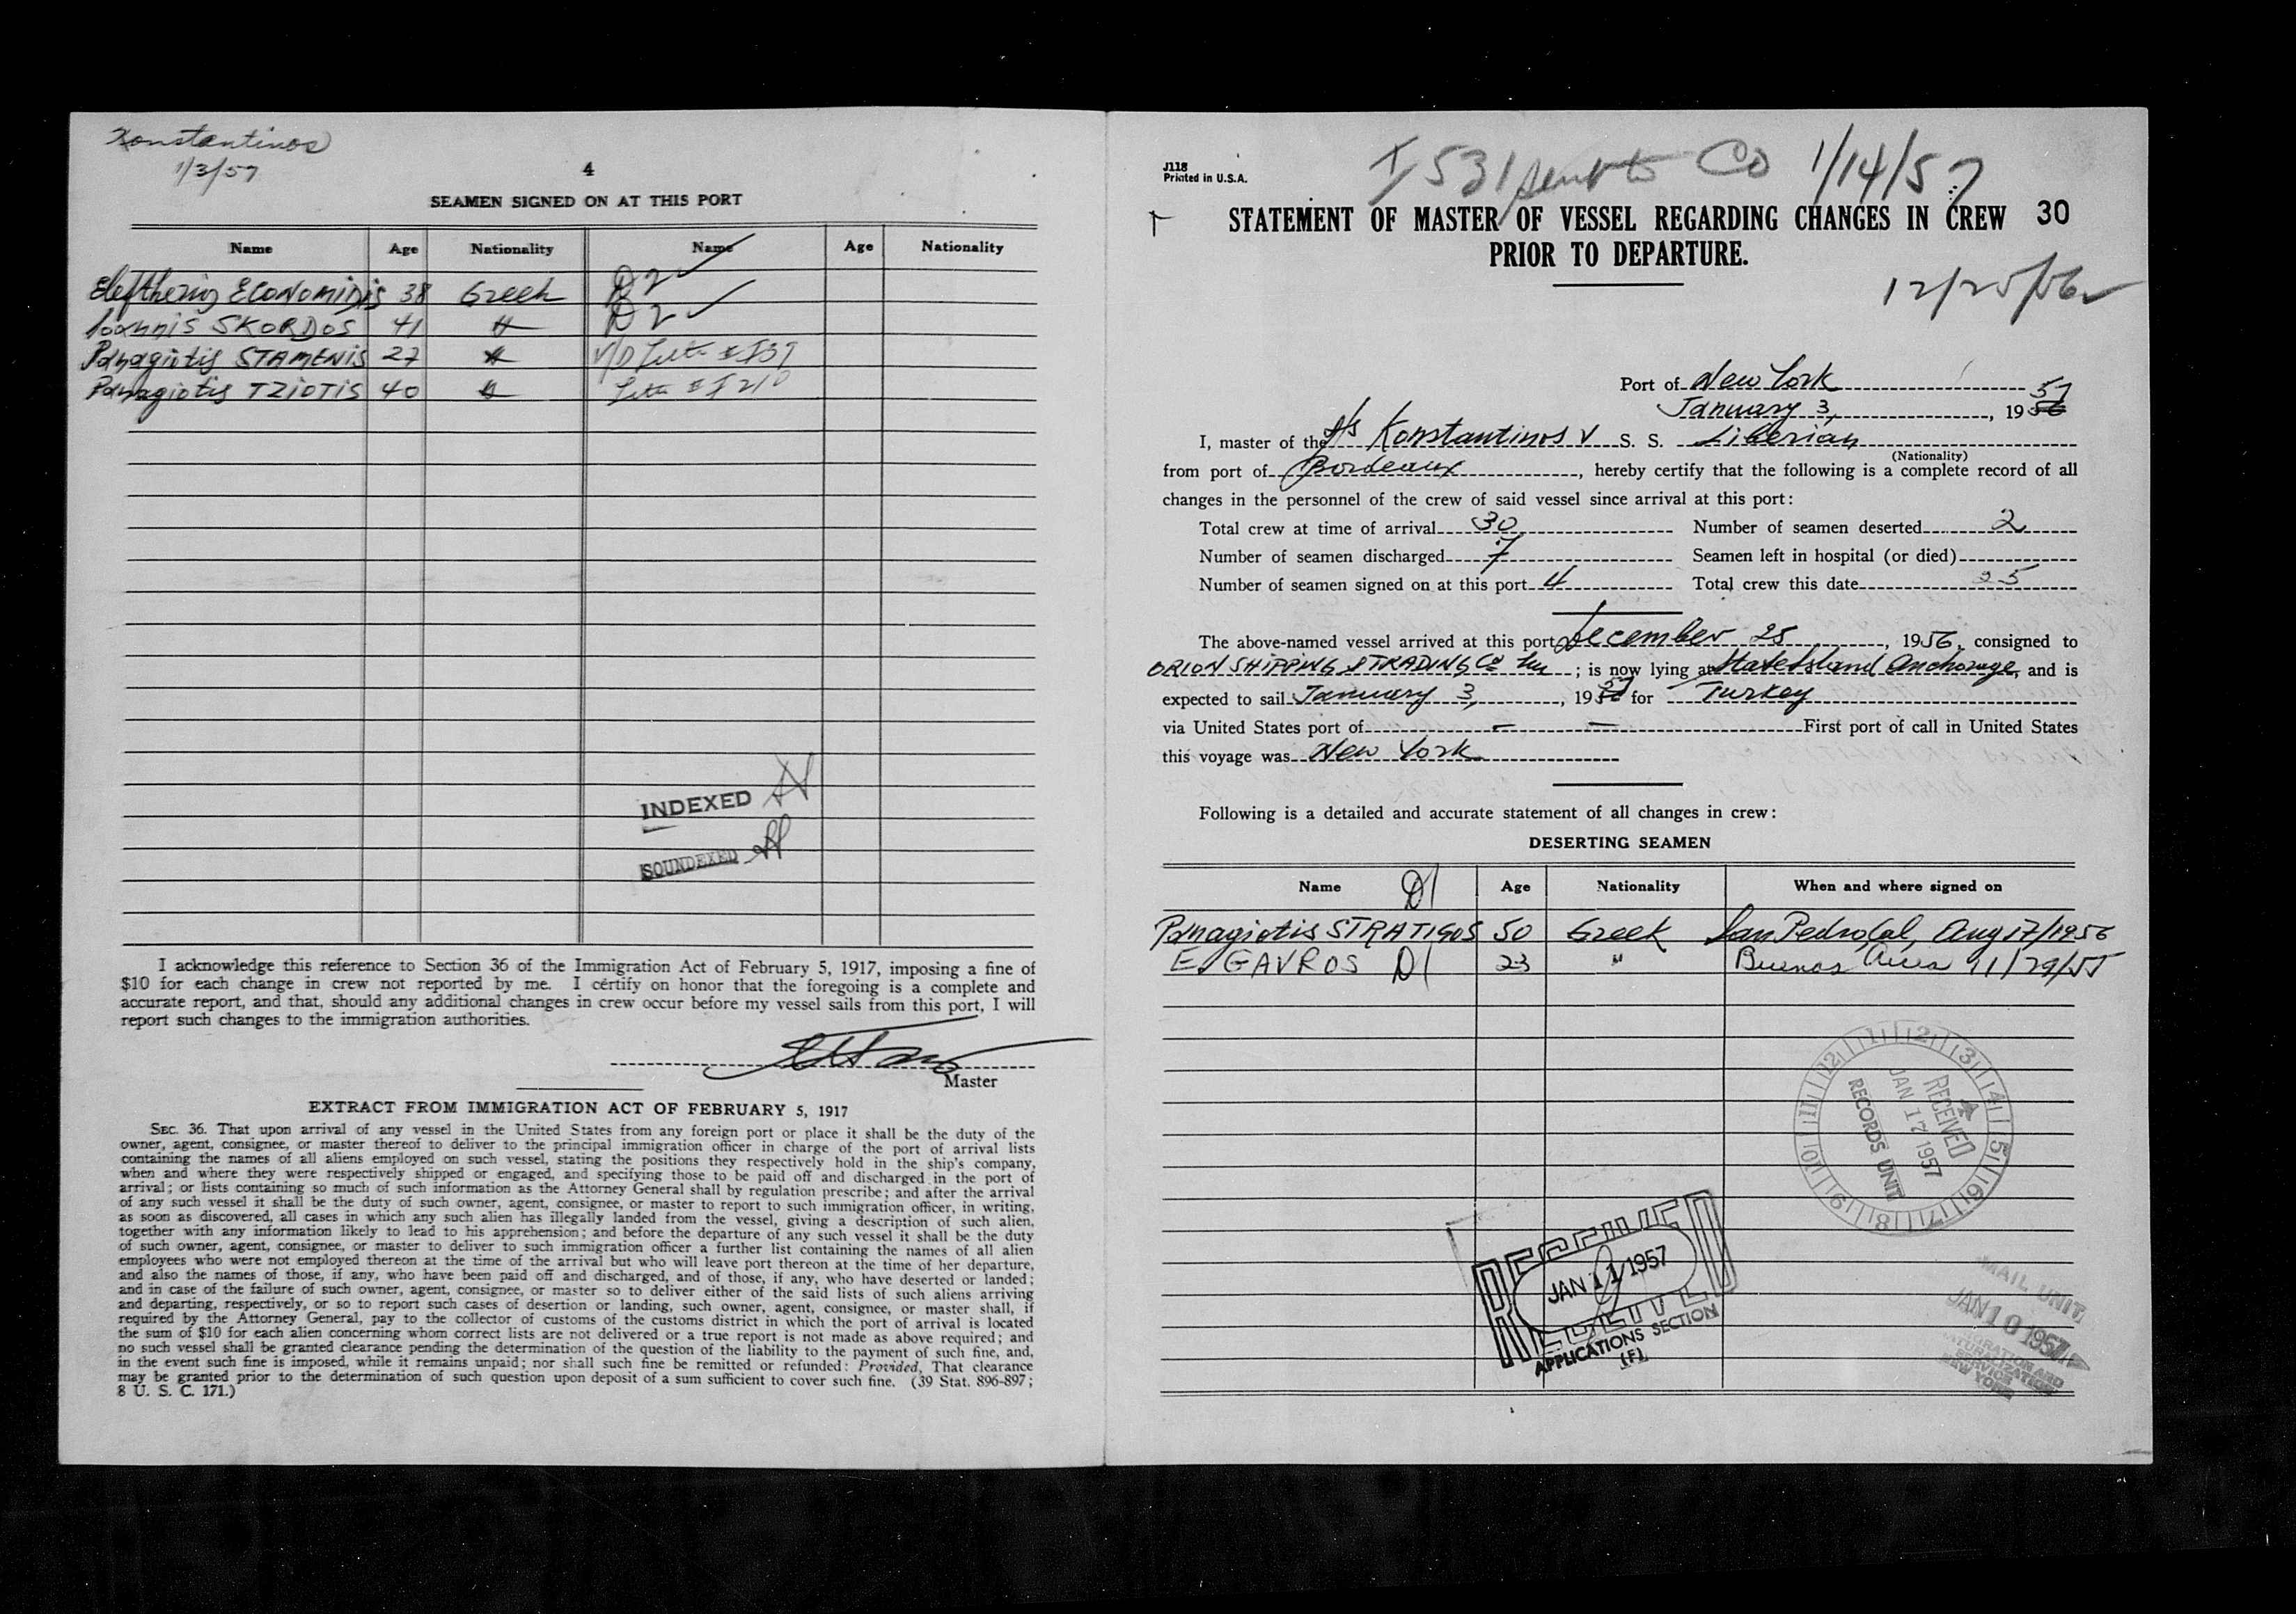 Konstantinos
1/3/57
4
SEAMEN SIGNED ON AT THIS PORT
Name Age Nationality Name Age Nationality
Eleftherios ECONOMIDIS 38 Greek D2
Ioannis SKORDOS 41 " D2
Panagiotis STAMENIS 27 "
Panagiotis TZIOTIS 40 "
INDEXED
SOUNDEXED
I acknowledge this reference to Section 36 of the Immigration Act of February 5, 1917, imposing a fine of
$10 for each change in crew not reported by me. I certify on honor that the foregoing is a complete and
accurate report, and that, should any additional changes in crew occur before my vessel sails from this port, I will
report such changes to the immigration authorities.
Master
EXTRACT FROM IMMIGRATION ACT OF FEBRUARY 5, 1917
SEC. 36. That upon arrival of any vessel in the United States from any foreign port or place it shall be the duty of the
owner, agent, consignee, or master thereof to deliver to the principal immigration officer in charge of the port of arrival lists
containing the names of all aliens employed on such vessel, stating the positions they respectively hold in the ship's company,
when and where they were respectively shipped or engaged, and specifying those to be paid off and discharged in the port of
arrival; or lists containing so much of such information as the Attorney General shall by regulation prescribe; and after the arrival
of any such vessel it shall be the duty of such owner, agent, consignee, or master to report to such immigration officer, in writing,
as soon as discovered, all cases in which any such alien has illegally landed from the vessel, giving a description of such alien,
together with any information likely to lead to his apprehension; and before the departure of any such vessel it shall be the duty
of such owner, agent, consignee, or master to deliver to such immigration officer a further list containing the names of all alien
employees who were not employed thereon at the time of the arrival but who will leave port thereon at the time of her departure,
and also the names of those, if any, who have been paid off and discharged, and of those, if any, who have deserted or landed;
and in case of the failure of such owner, agent, consignee, or master so to deliver either of the said lists of such aliens arriving
and departing, respectively, or so to report such cases of desertion or landing, such owner, agent, consignee, or master shall, if
required by the Attorney General, pay to the collector of customs of the customs district in which the port of arrival is located
the sum of $10 for each alien concerning whom correct lists are not delivered or a true report is not made as above required; and
no such vessel shall be granted clearance pending the determination of the question of the liability to the payment of such fine, and,
in the event such fine is imposed, while it remains unpaid; nor shall such fine be remitted or refunded: Provided, That clearance
may be granted prior to the determination of such question upon deposit of a sum sufficient to cover such fine. (39 Stat. 896-897;
8 U. S. C. 171.)
J118
Printed in U.S.A.
I 531 sent to CO 1/14/57
STATEMENT OF MASTER OF VESSEL REGARDING CHANGES IN CREW 30
PRIOR TO DEPARTURE.
12/25/56
Port of New York
January 3, 1956 57
I, master of the Konstantinos V S. S. Liberian
(Nationality)
from port of Bordeaux, hereby certify that the following is a complete record of all
changes in the personnel of the crew of said vessel since arrival at this port:
Total crew at time of arrival 30 Number of seamen deserted 2
Number of seamen discharged 7 Seamen left in hospital (or died)
Number of seamen signed on at this port 4 Total crew this date 25
The above-named vessel arrived at this port December 25, 1956, consigned to
ORION SHIPPING & TRADING Co Inc; is now lying at State Island Anchorage, and is
expected to sail January 3, 1957 for Turkey
via United States port of - - First port of call in United States
this voyage was New York
Following is a detailed and accurate statement of all changes in crew:
DESERTING SEAMEN
Name D1 Age Nationality When and where signed on
Panagiotis STRATIGOS 50 Greek San Pedro Cal, Aug 17/1956
E. GAVROS D1 23 " Buenos Aires 11/29/55
12 1 2 3 4 5 6 7 8 9 10 11
RECEIVED
JAN 17 1957
RECORDS UNIT
RECEIVED
JAN 11 1957
APPLICATIONS SECTION
(F)
MAIL UNIT
JAN 10 1957
IMMIGRATION AND
NATURALIZATION
SERVICE
NEW YORK